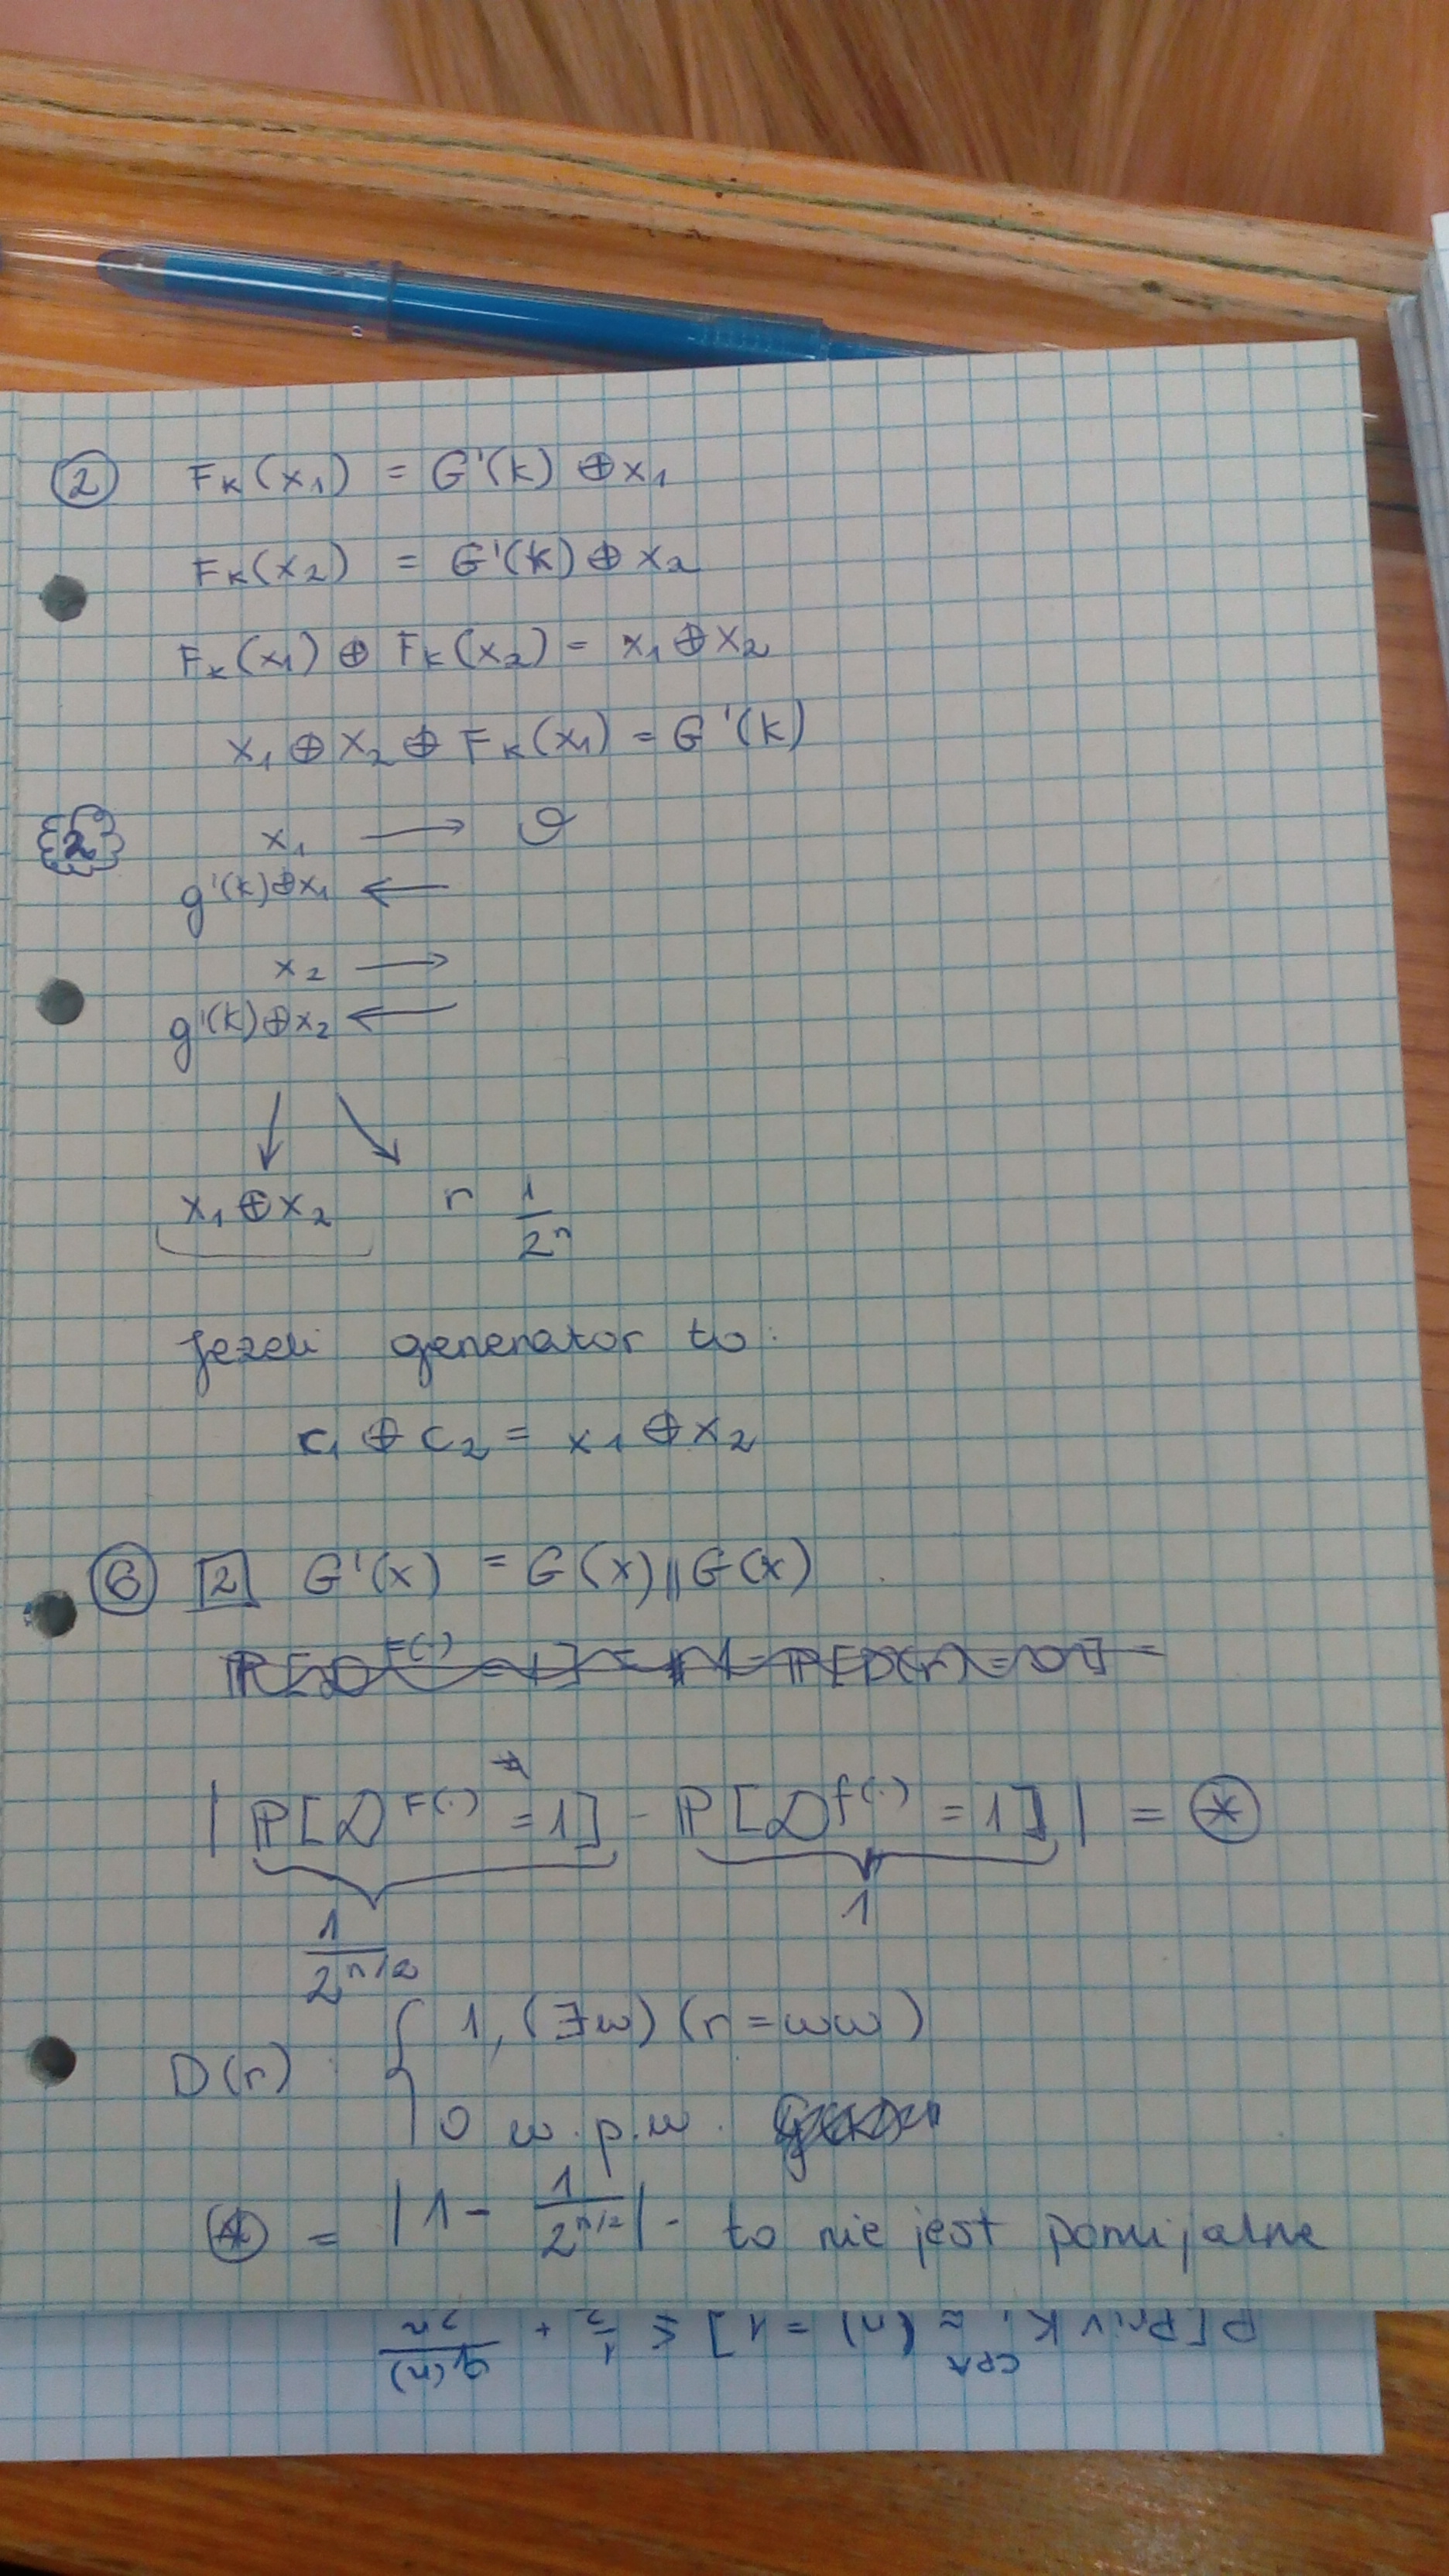 ② Fₖ(x₁) = G'(k) ⊕ x₁
Fₖ(x₂) = G'(k) ⊕ x₂
Fₖ(x₁) ⊕ Fₖ(x₂) = x₁ ⊕ x₂
x₁ ⊕ x₂ ⊕ Fₖ(x₁) = G'(k)
2 x₁ → O
g'(k) ⊕ x₁ ←
x₂ →
g'(k) ⊕ x₂ ←
x₁ ⊕ x₂ r 1/2ⁿ
jeżeli generator to:
c₁ ⊕ c₂ = x₁ ⊕ x₂
⑥ 2 G'(x) = G(x) || G(x)
| ℙ[D^F(·) = 1] - ℙ[D^f(·) = 1] | = ⊛
1/2^(n/2) 1
D(r) : { 1, (∃w) (r = ww)
0 w.p.w.
⊛ = | 1 - 1/2^(n/2) | - to nie jest pomijalne
P[PrivK^CPA (n) = 1] ≤ 1/2 + q(n)/2ⁿ